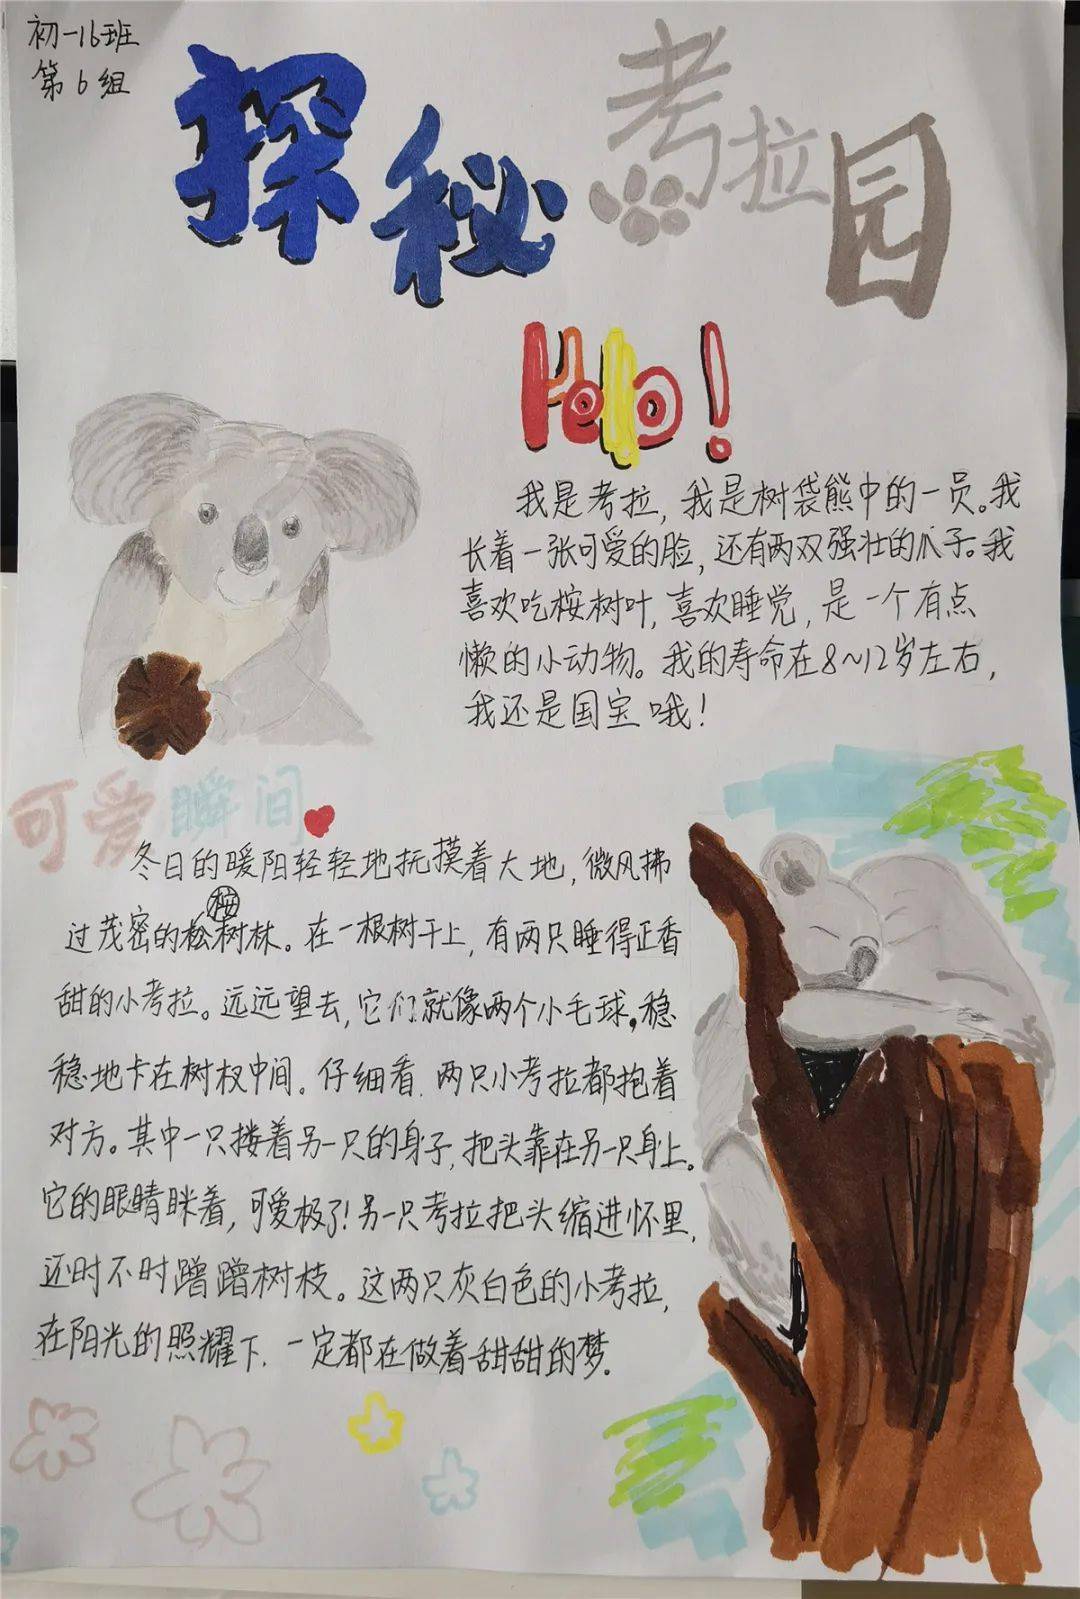 初一16班
第6组
探秘考拉园
Hello!
我是考拉，我是树袋熊中的一员。我
长着一张可爱的脸，还有两双强壮的爪子。我
喜欢吃桉树叶，喜欢睡觉，是一个有点
懒的小动物。我的寿命在8~12岁左右，
我还是国宝哦！
可爱瞬间
冬日的暖阳轻轻地抚摸着大地，微风拂
桉
过茂密的松树林。在一根树干上，有两只睡得正香
甜的小考拉。远远望去，它们就像两个小毛球，稳
稳地卡在树杈中间。仔细看，两只小考拉都抱着
对方。其中一只搂着另一只的身子，把头靠在另一只身上。
它的眼睛眯着，可爱极了！另一只考拉把头缩进怀里，
还时不时蹭蹭树枝。这两只灰白色的小考拉，
在阳光的照耀下，一定都在做着甜甜的梦。